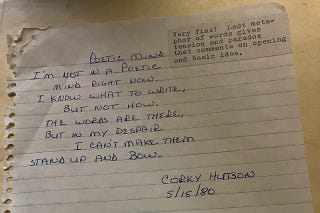 Very fine! Last meta-
phor of words gives
tension and paradox
that comments on opening
and basic idea.
POETIC MIND
I'M NOT IN A POETIC
MIND RIGHT NOW.
I KNOW WHAT TO WRITE,
BUT NOT HOW.
THE WORDS ARE THERE,
BUT IN MY DESPAIR
I CAN'T MAKE THEM
STAND UP AND BOW.
CORKY HUTSON
5/15/80